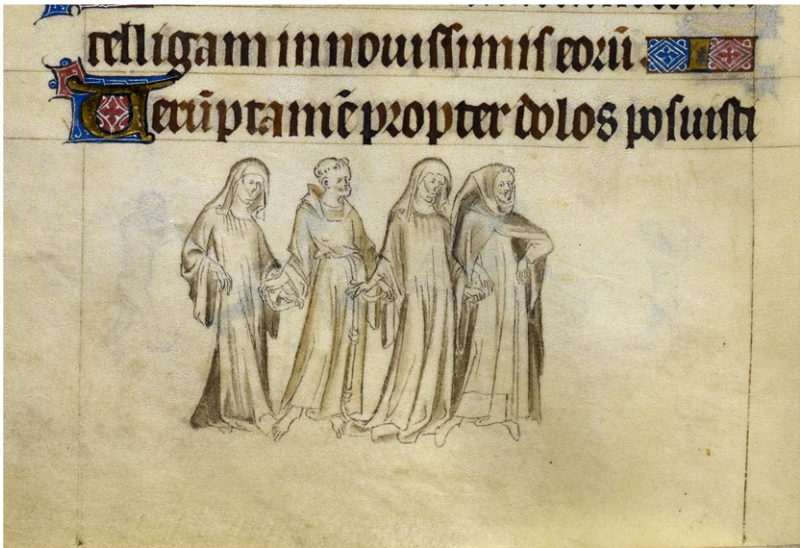 telligam in nouissimis eorū
Uerūptamē propter dolos posuisti